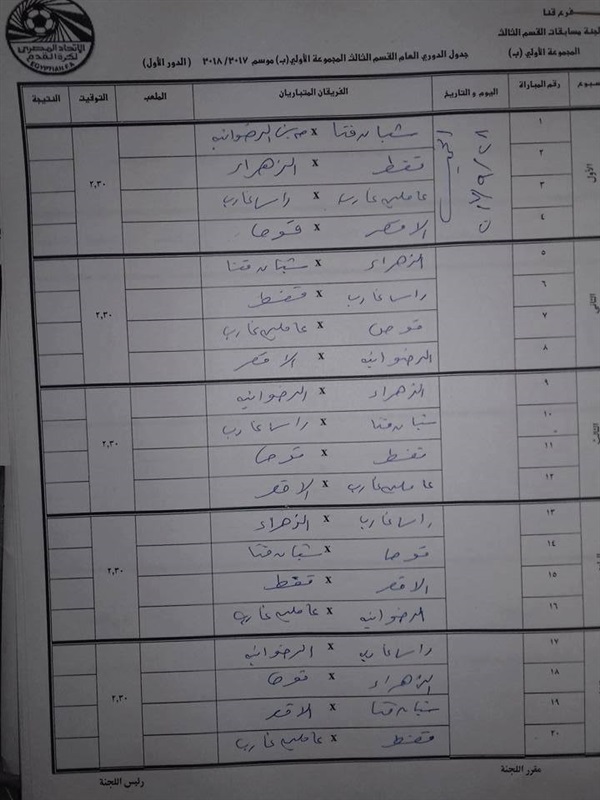 فرع قنا
لجنة مسابقات القسم الثالث
المجموعة الأولي (ب)
الاتحاد المصري
لكرة القدم
EGYPTIAN F.A
جدول الدوري العام القسم الثالث المجموعة الأولي (ب) موسم ٢٠١٧/ ٢٠١٨ (الدور الأول)
رقم المباراة اليوم و التاريخ الفريقان المتباريان الملعب التوقيت النتيجة
الأول
٢,٣٠
١ شبان قنا x الرضوانيه
٢ قفط x الزهراء
٣ عاملين غارب x راس غارب
٤ الاقصر x قوص
الثاني
٢,٣٠
٥ الزهراء x شبان قنا
٦ راس غارب x قفط
٧ قوص x عاملين غارب
٨ الرضوانيه x الاقصر
الثالث
٢,٣٠
٩ الزهراء x الرضوانيه
١٠ شبان قنا x راس غارب
١١ قفط x قوص
١٢ عاملين غارب x الاقصر
٢,٣٠
١٣ راس غارب x الزهراء
١٤ قوص x شبان قنا
١٥ الاقصر x قفط
١٦ الرضوانيه x عاملين غارب
٢,٣٠
١٧ راس غارب x الرضوانيه
١٨ الزهراء x قوص
١٩ شبان قنا x الاقصر
٢٠ قفط x عاملين غارب
مقرر اللجنة
رئيس اللجنة